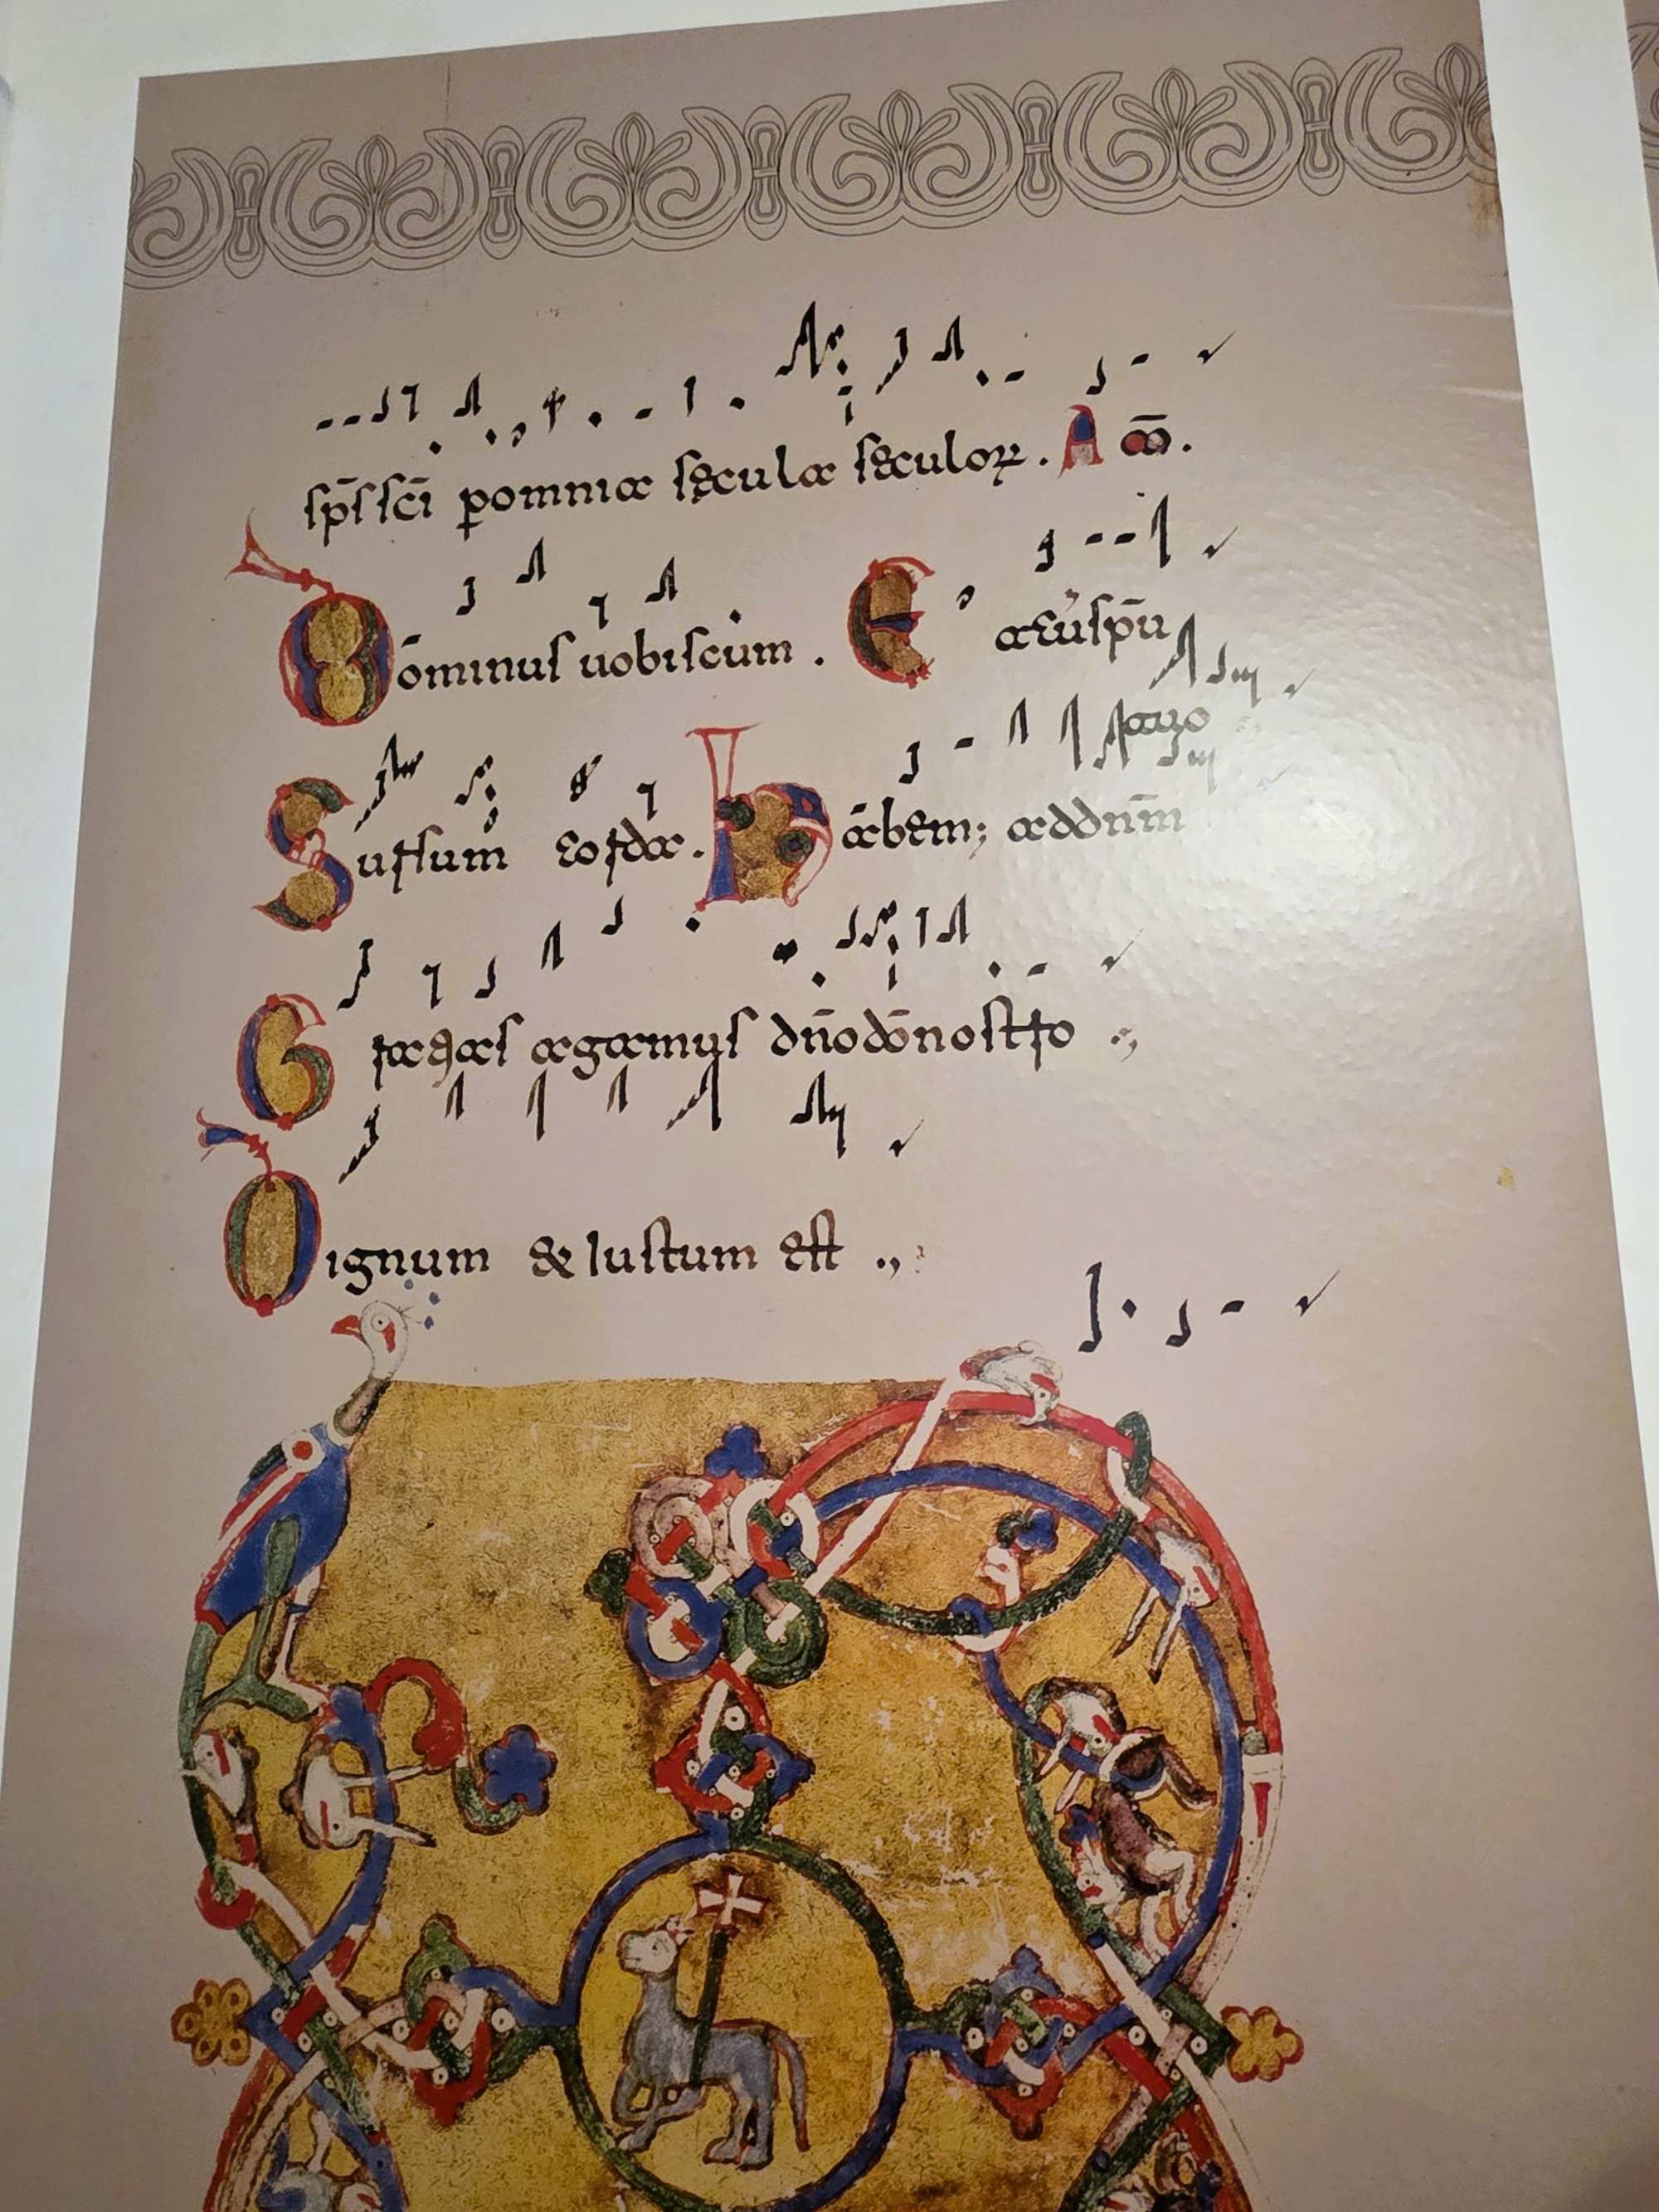 sp̄s sc̄i ꝑomnia sęcula sęculoꝝ. A m̄.
Dominus uobiscum. E tcūsp̄u tuo
Sursum corda. H abem; addn̄m
Gratias agamus dn̄odōnostro
Dignum & Iustum est